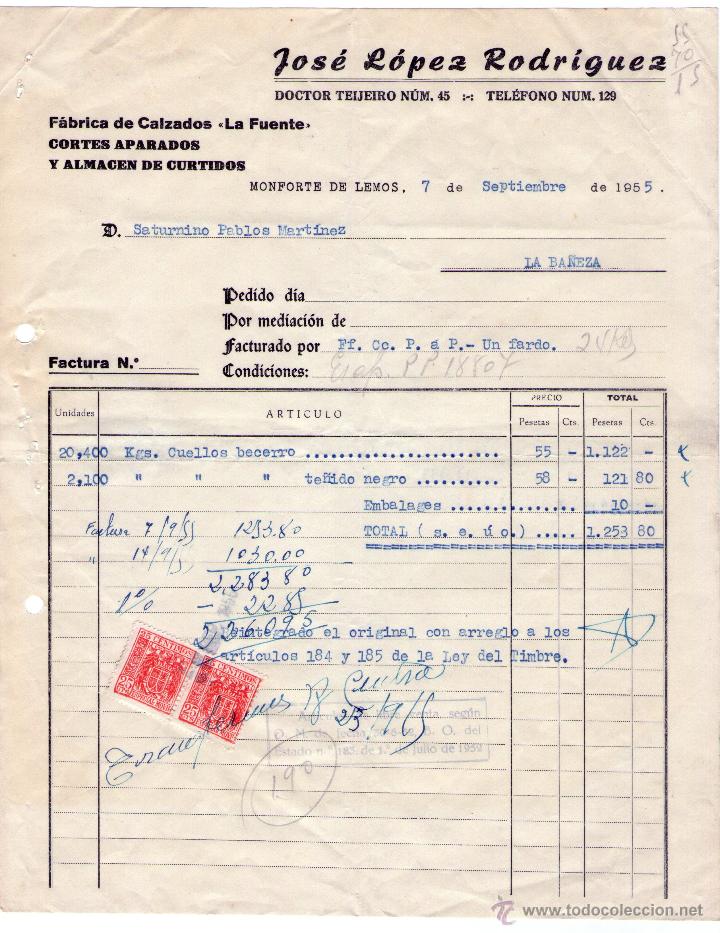 José López Rodríguez
DOCTOR TEIJEIRO NÚM. 45 :-: TELÉFONO NUM. 129
Fábrica de Calzados «La Fuente»
CORTES APARADOS
Y ALMACEN DE CURTIDOS
MONFORTE DE LEMOS, 7 de Septiembre de 1955.
D. Saturnino Pablos Martínez
LA BAÑEZA
Pedido día
Por mediación de
Facturado por Ff. Cc. P. á P.- Un fardo.
Factura N.º
Condiciones:
PRECIO TOTAL
Unidades ARTICULO Pesetas Cts. Pesetas Cts.
20,400 Kgs. Cuellos becerro ........................ 55 - 1.122 -
2,100 " " " teñido negro .......... 58 - 121 80
Embalages ............... 10 -
Factura 7/9/55 1253.80 TOTAL ( s. e. ú o.) ..... 1.253 80
" 14/9/55 1030.00
2,283 80
1% - 22 85
2,260 95
Reintegrado el original con arreglo a los
artículos 184 y 185 de la Ley del Timbre.
25 CENTIMOS 25 CENTIMOS
25 CTS 25 CTS
según
O. M. de B. O. del
Estado n.º 183, de 1.º de julio de 1952
190
www.todocoleccion.net